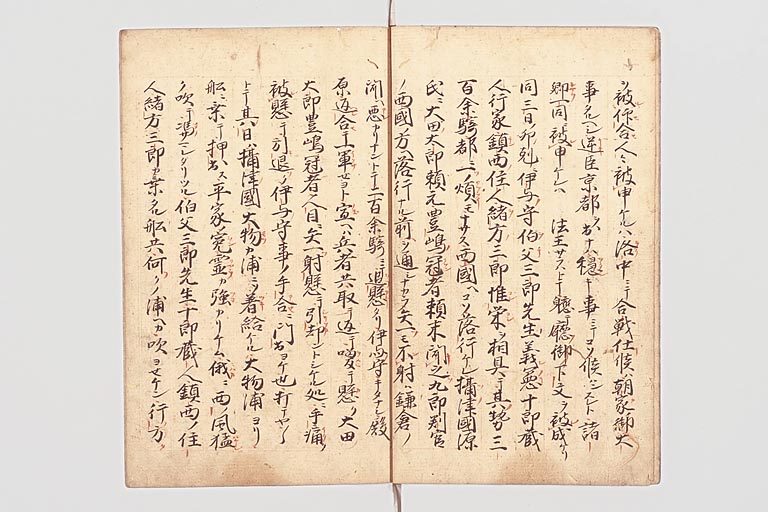 ヲ被仰合人々被申ケルハ洛中ニテ合戦仕候ハ朝家御大
事ナルヘシ逆臣京都ヲ出ナハ穏キ事ニテコソ候ハンスレト諸
卿一同被申ケレハ法王サラハトテ軈廰御下文ヲ被成ケリ
同三日卯剋伊与守伯父三郎先生義憲十郎蔵
人行家鎮西住人緒方三郎惟栄ヲ相具シテ其勢三
百余騎都ニ一ノ煩モナサス西國ヘコソ落行ケレ攝津國源
氏ニ大田太郎頼元豊嶋冠者頼末聞之九郎判官
ノ西國ノ方ヘ落行ナルヲ前ヲ通シナカラ矢一モ不射ハ鎌倉ノ
聞ヘ悪カリナントテ二百余騎ニテ追懸タリ伊与守キタナシ殿
原返合セヨ軍セヨト宣ヘハ兵者共取テ返シテ喚テ懸ク大田
太郎豊嶋冠者人目ニ矢一射懸テ引却ントシケル処ニ手痛ク
被懸テ引退ク伊与守事ノ手合ニ門出ヨケ也打テヤトテ
トテ其六日ハ攝津國大物カ浦ニソ着給ケル大物浦ヨリ
舩ニ乗テ押出ス平家寃霊カ強カリケム俄ニ西ノ風猛
ク吹テ伯父三郎先生十郎蔵人鎮西ノ住
人緒方三郎カ乗タル舩共何クノ浦ヘカ吹ヨセケン行方ヲ